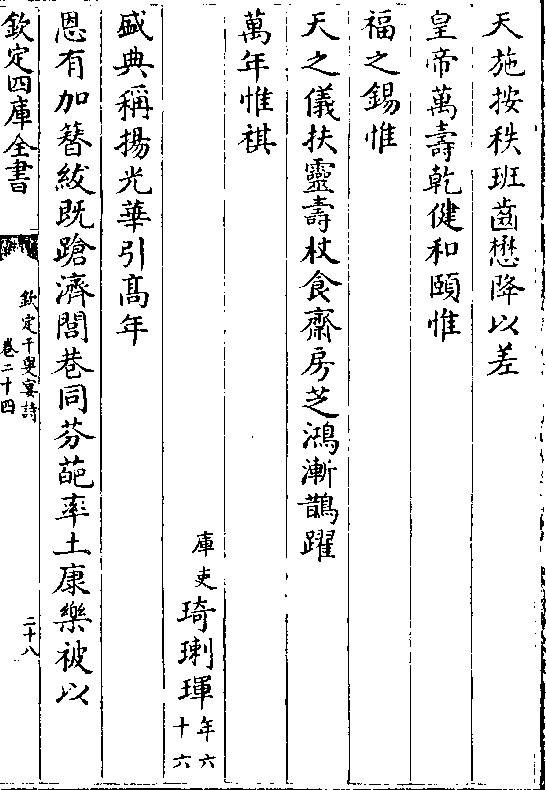 天施按秩班齒懋降以差
皇帝萬壽乾健和頤惟
福之錫惟
天之儀扶靈壽杖食齋房芝鴻漸鵲躍
萬年惟祺
庫吏琦㻝琿年六十六
盛典稱揚光華引髙年
恩有加簪紱既蹌濟閭巷同芬葩率土康樂被以
欽定四庫全書
欽定千叟宴詩
卷二十四
二十八